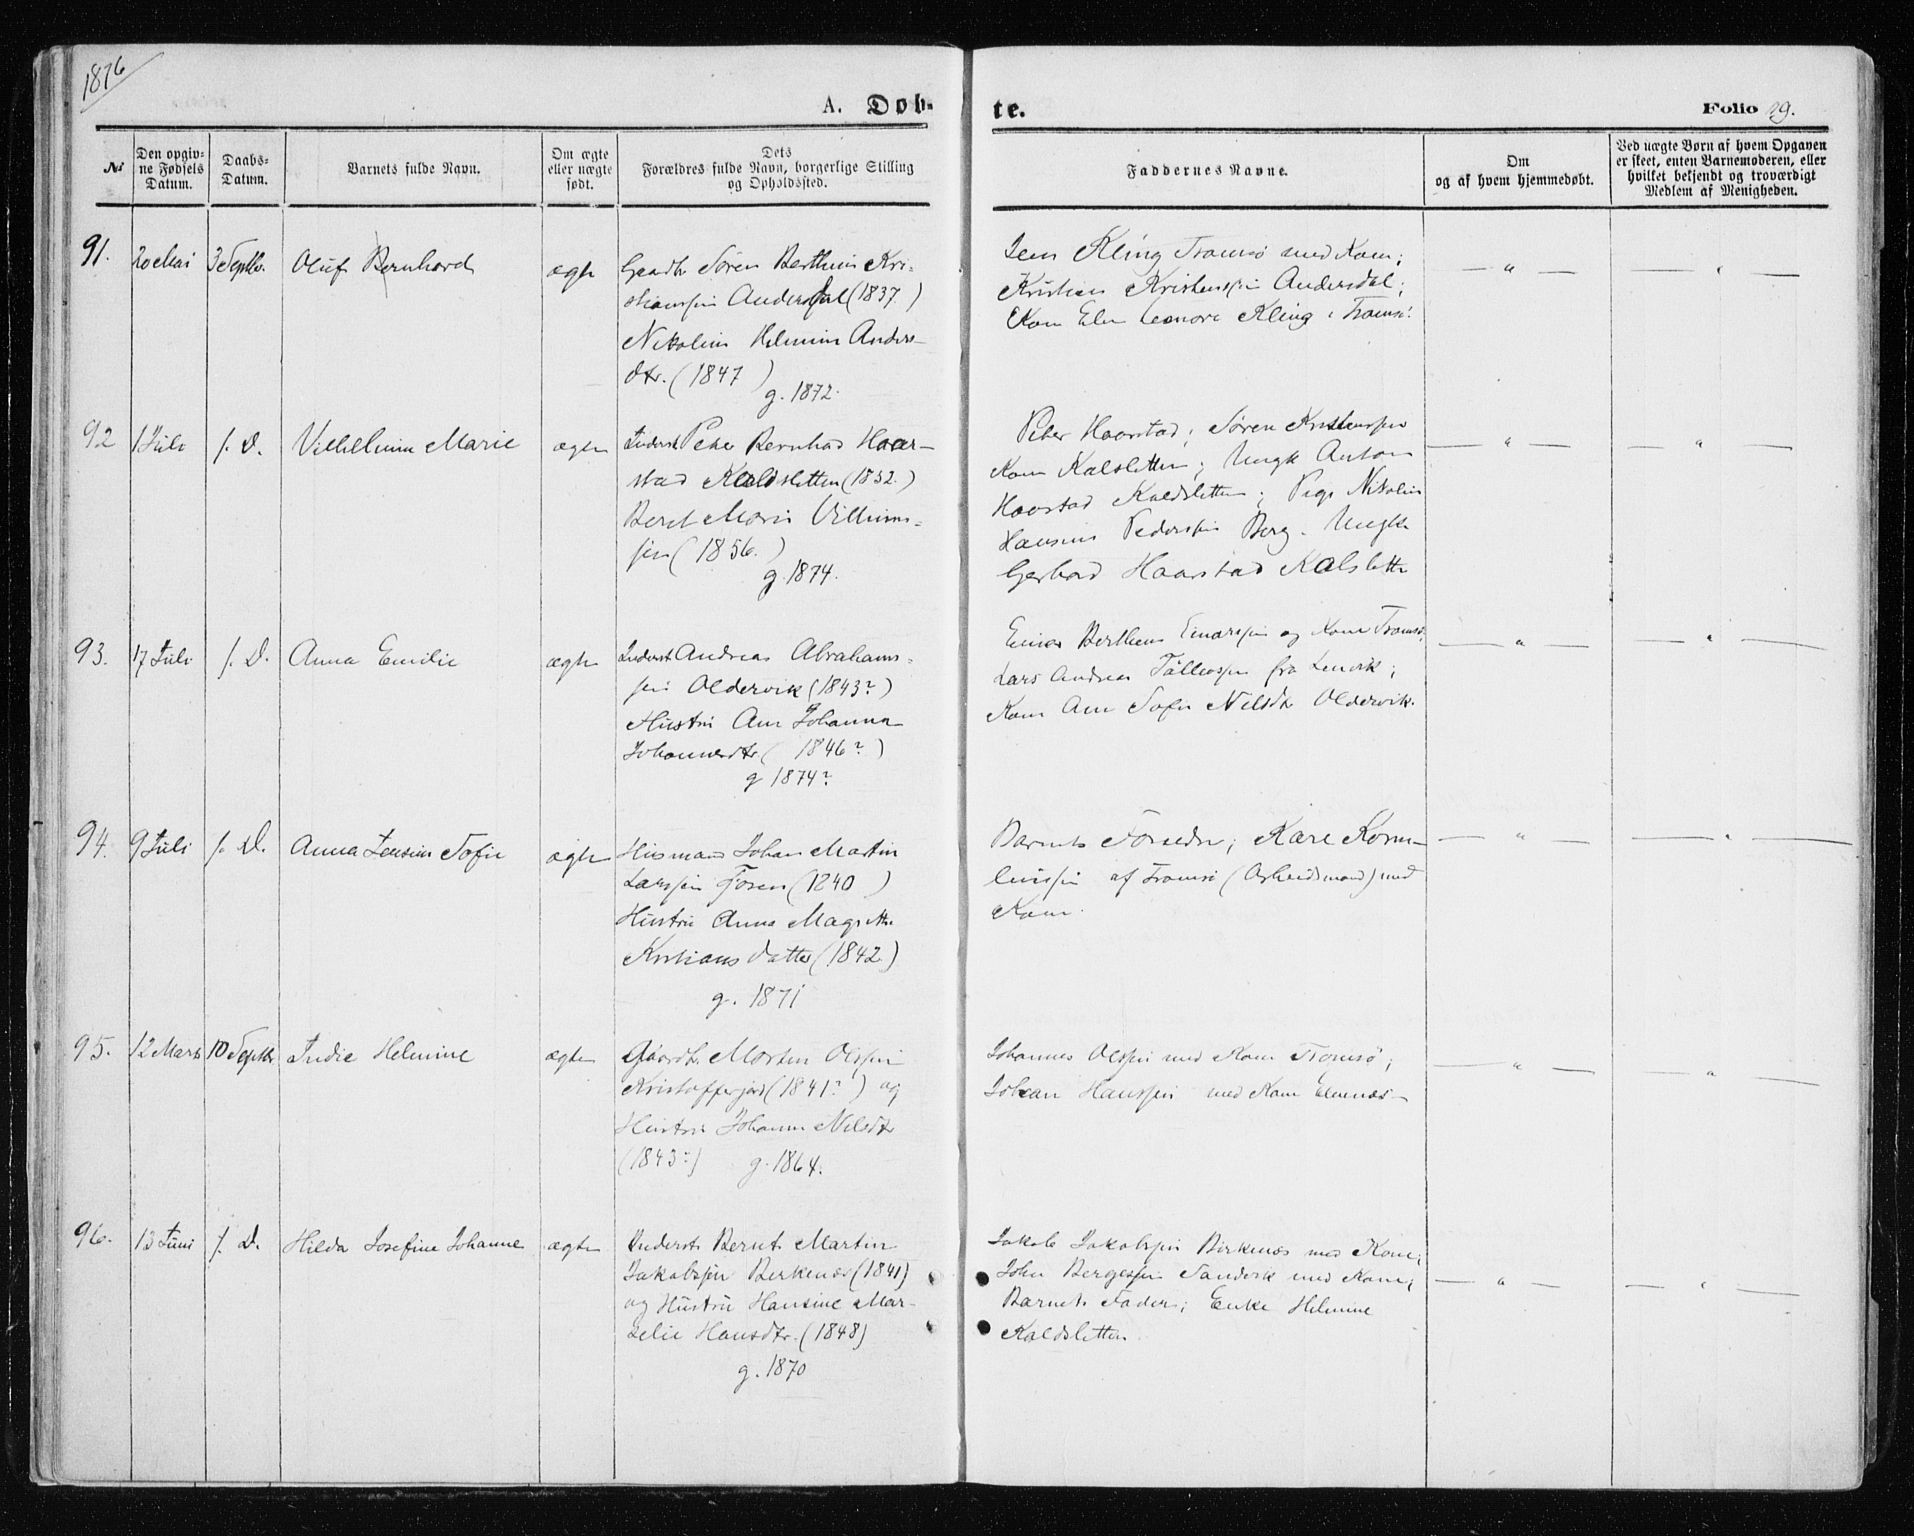 1876
A. Døb-
te.
Folio 29.
No
Den opgiv-
ne Fødsels
Datum.
Daabs-
Datum.
Barnets fulde Navn.
Om ægte
eller uægte
født.
Dets
Forældres fulde Navn, borgerlige Stilling
og Opholdssted.
Faddernes Navne.
Om
og af hvem hjemmedøbt.
Ved uægte Børn af hvem Opgaven
er skeet, enten Barnemoderen, eller
hvilket bekjendt og troværdigt
Medlem af Menigheden.
91.
20 Mai
3 Septbr.
Oluf Bernhard
ægte
Gaardbr Søren Bertheus Kri-
stianssen Andersdal (1837)
Nikoline Helmine Anders-
dtr. (1847)
g. 1872.
Jens Kling Tromsø med Kone;
Kristian Kristenssen Andersdal;
Kone Elen Leonore Kling i Tromsø.
92
1 Juli
s. D.
Vilhelmine Marie
ægte
Inderst Peter Bernhad Haar-
stad Kaldsletten (1852.)
Beret Marie Vilhelms-
sen (1856.)
g. 1874.
Peter Haarstad; Søren Kristenssen
Kone Kalsletten; Ungk Anton
Haarstad Kaldsletten; Pige Nikoline
Hansine Pederssen Berg. Ungk
Gerhard Haarstad Kalslette
93.
17 Juli
s. D.
Anna Emilie
ægte
Inderst Andreas Abrahams-
sen Oldervik (1843?)
Hustru Ane Johanna
Johannesdtr. (1846?)
g 1874?
Einar Bertheus Einarssen og Kone Tromsø,
Lars Andreas Tollevssen fra Lenvik;
Kone Ane Sofie Nilsdtr Oldervik.
94.
9 Juli
s. D.
Anna Jensine Sofie
ægte
Husmand Johan Martin
Larssen Tosen (1840)
Hustru Anna Magrethe
Kristians datter (1842)
g. 1871
Barnets Forældre; Kare Korne-
liussen af Tromsø (Arbeidsmand) med
Kone.
95.
12 Marts
10 Septbr
Indie Helmine
ægte
Gaardbr. Morten Olssen
Kristofferjord (1841?) og
Hustru Johanne Nilsdtr
(1843?) g. 1864.
Johannes Olssen med Kone Tromsø;
Johan Hanssen med Kone Elvenæs
96.
13 Juni
s. D.
Hilda Josefine Johanne
ægte
Inderst Bernt Martin
Jakobssen Berkenæs (1841)
og Hustru Hansine Mar-
selie Hansdtr. (1848)
g. 1870
Jakob Jakobssen Birkenæs med Kone;
John Bergessen Sandvik med Kone;
Barnets Fader; Enke Helmine
Kaldsletten